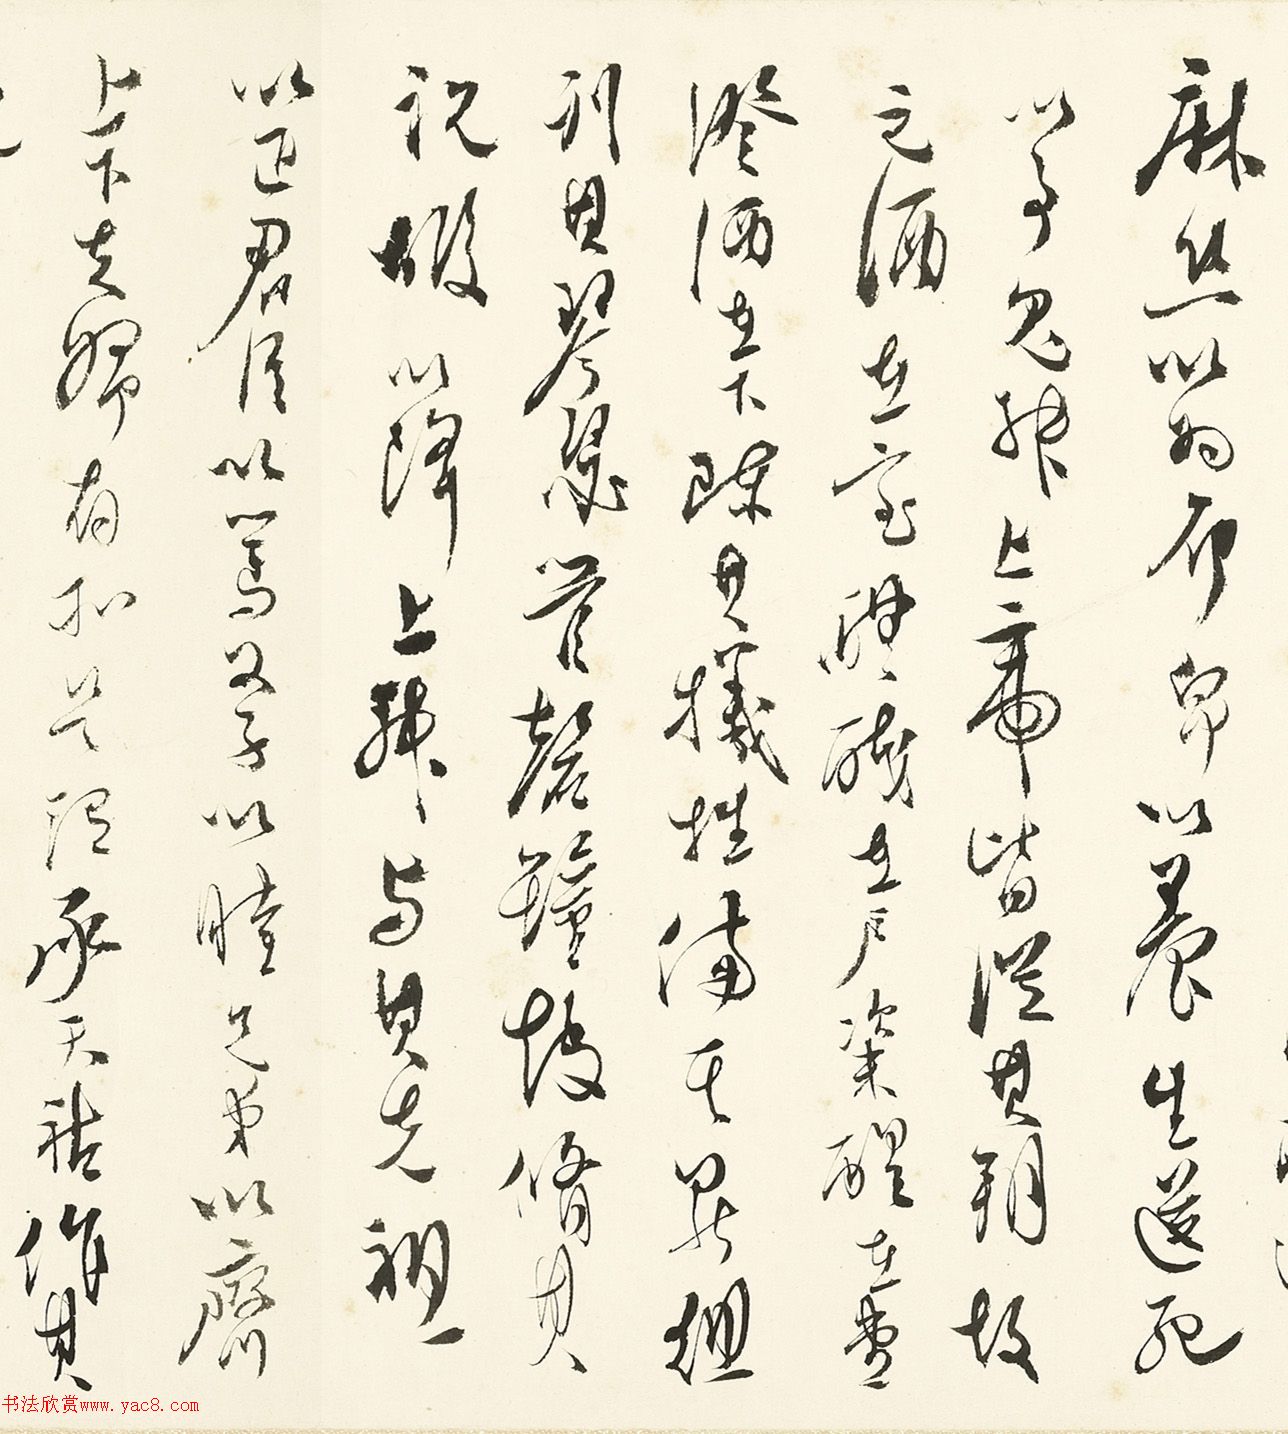 麻絲以為布帛以養生送死
以事鬼神上帝皆從其朔故
玄酒在室醴醆在戶粢醍在堂
澄酒在下陳其犧牲備其鼎俎
列其琴瑟管磬鐘鼓脩其
祝嘏以降上神與其先祖
以正君臣以篤父子以睦兄弟以齊
上下夫婦有所是謂承天祜作其
书法欣赏www.yac8.com